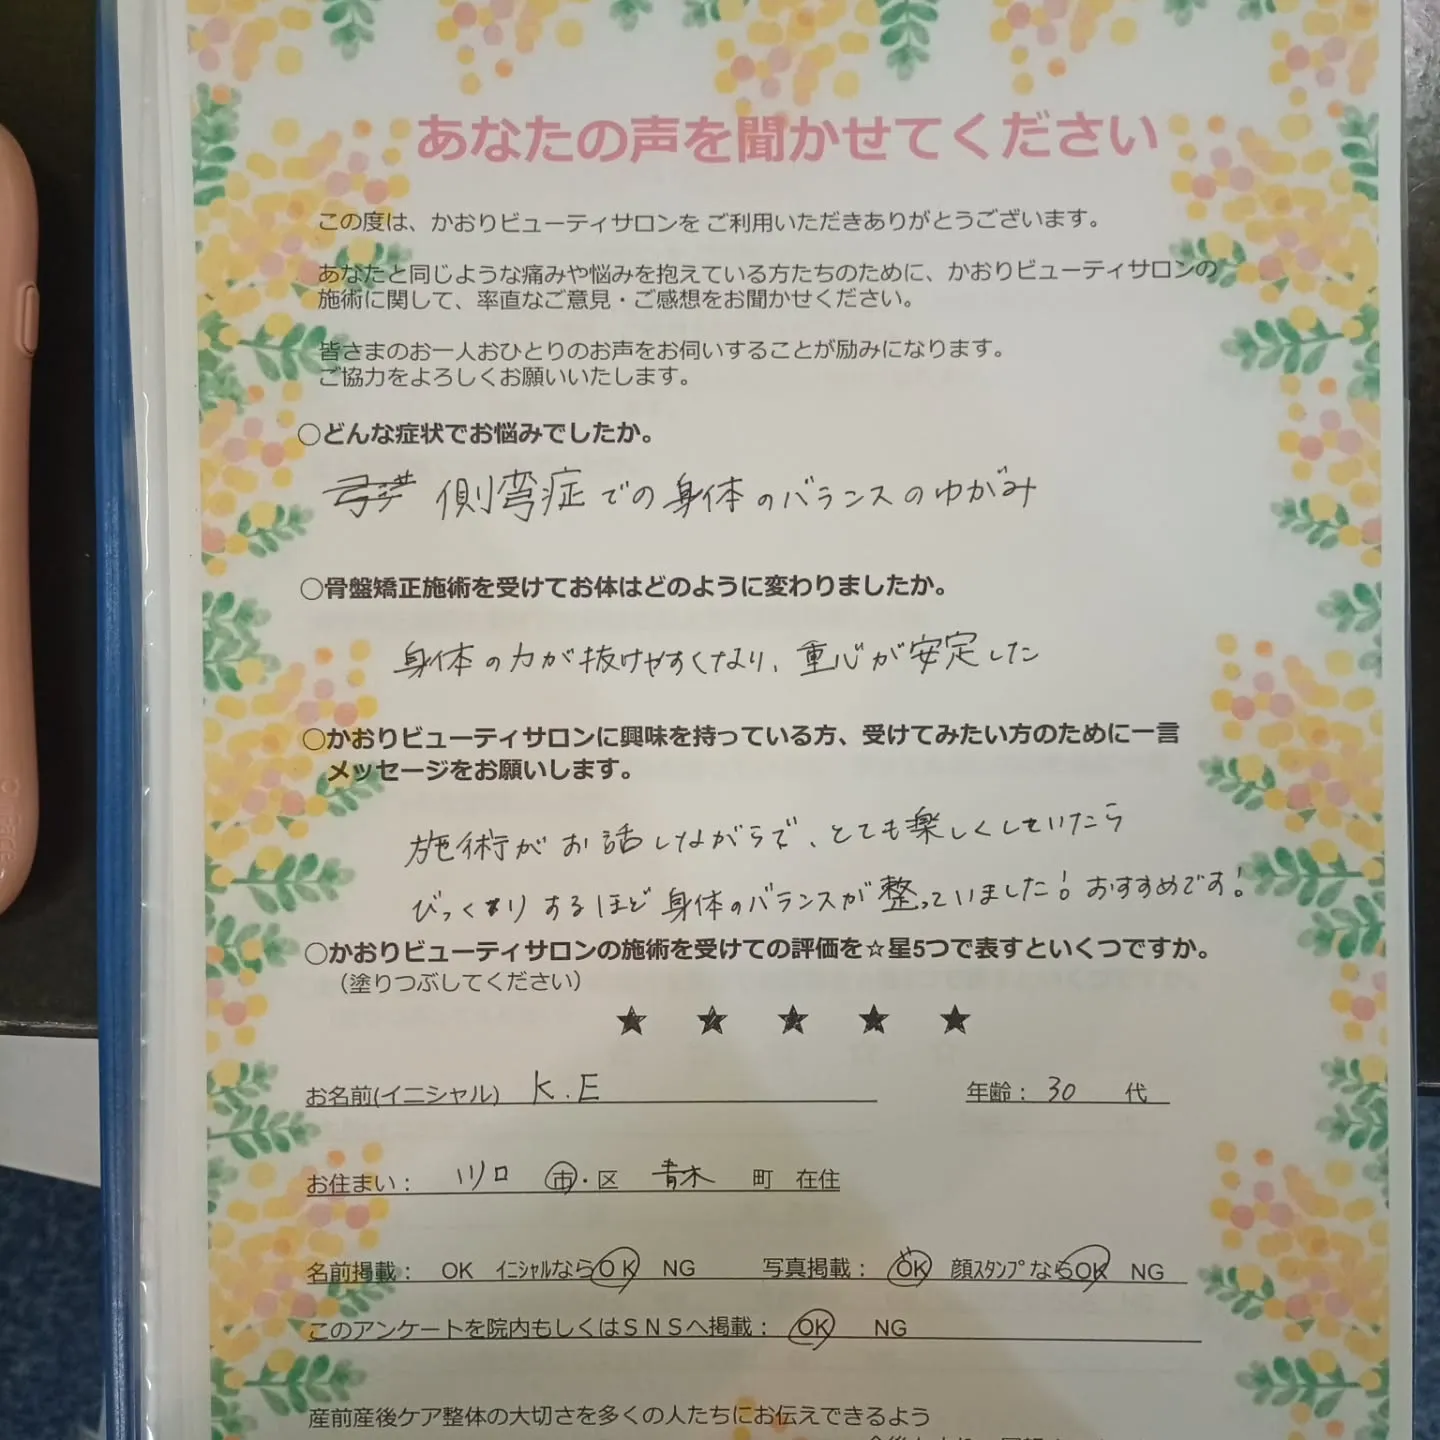 あなたの声を聞かせてください
この度は、かおりビューティサロンを ご利用いただきありがとうございます。
あなたと同じような痛みや悩みを抱えている方たちのために、かおりビューティサロンの
施術に関して、率直なご意見・ご感想をお聞かせください。
皆さまのお一人おひとりのお声をお伺いすることが励みになります。
ご協力をよろしくお願いいたします。
○どんな症状でお悩みでしたか。
側弯症での身体のバランスのゆがみ
○骨盤矯正施術を受けてお体はどのように変わりましたか。
身体の力が抜けやすくなり、重心が安定した
○かおりビューティサロンに興味を持っている方、受けてみたい方のために一言
メッセージをお願いします。
施術がお話しながらで、とても楽しくしていたら
びっくりするほど身体のバランスが整っていました!おすすめです!
○かおりビューティサロンの施術を受けての評価を☆星5つで表すといくつですか。
（塗りつぶしてください）
★ ★ ★ ★ ★
お名前(イニシャル) K.E 年齢： 30 代
お住まい： 川口 市・区 青木 町 在住
名前掲載： OK ｲﾆｼｬﾙならOK NG 写真掲載： OK 顔ｽﾀﾝﾌﾟならOK NG
このアンケートを院内もしくはＳＮＳへ掲載： OK NG
産前産後ケア整体の大切さを多くの人たちにお伝えできるよう